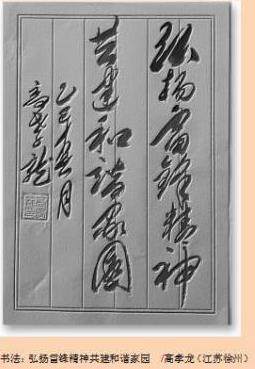 弘扬雷锋精神
共建和谐家园
乙巳春月
高孝龙
书法：弘扬雷锋精神共建和谐家园 /高孝龙（江苏徐州）